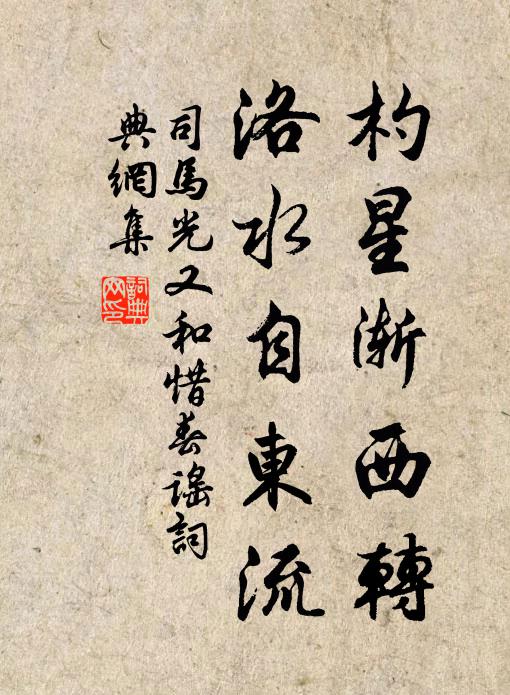 杓星渐西轉
洛水自東流
司馬光又和惜春謠詞
典網集
詞典網印